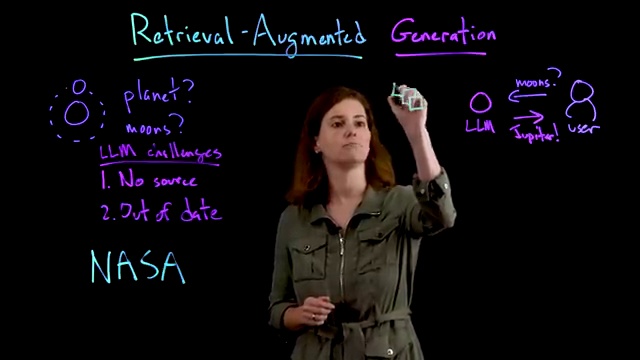 Retrieval-Augmented Generation
planet?
moons?
LLM challenges
1. No source
2. Out of date
NASA
moons?
LLM
Jupiter!
user